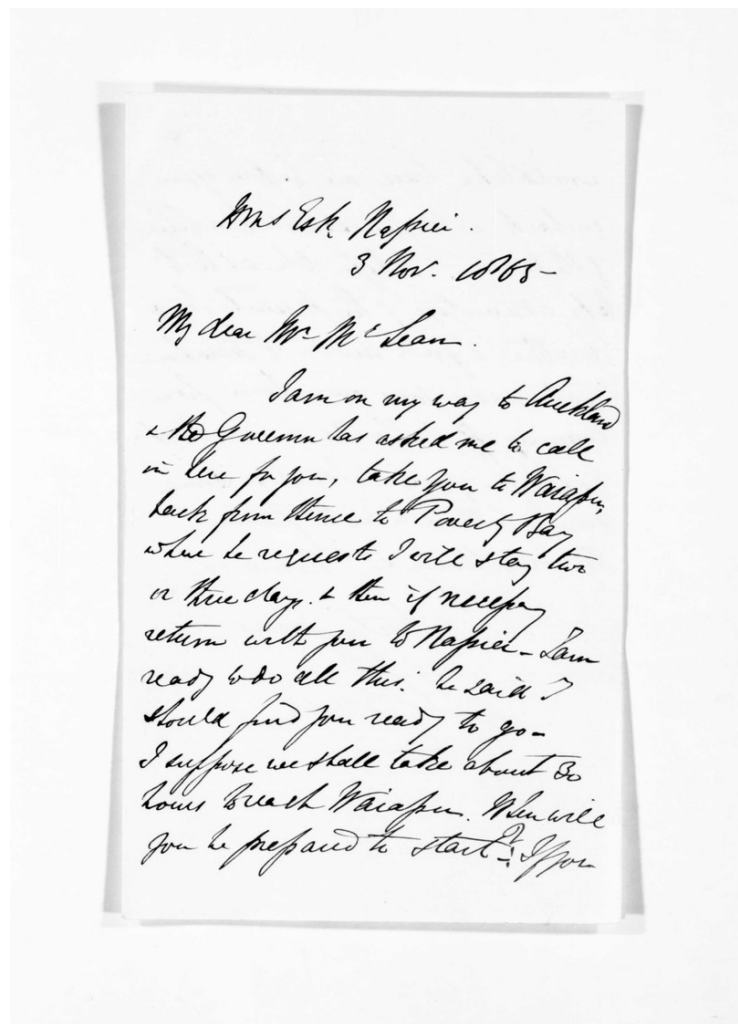 HMS Esk Napier.
3 Nov. 1865 -
My dear Mr McLean.
I am on my way to Auckland
& the Governor has asked me to call
in here for you, take you to Waiapu,
back from thence to Poverty Bay
where he requests I will stay two
or three days. & then if necessary
return with you to Napier - I am
ready to do all this. he said I
should find you ready to go -
I suppose we shall take about 30
hours to reach Waiapu. When will
you be prepared to start? If you